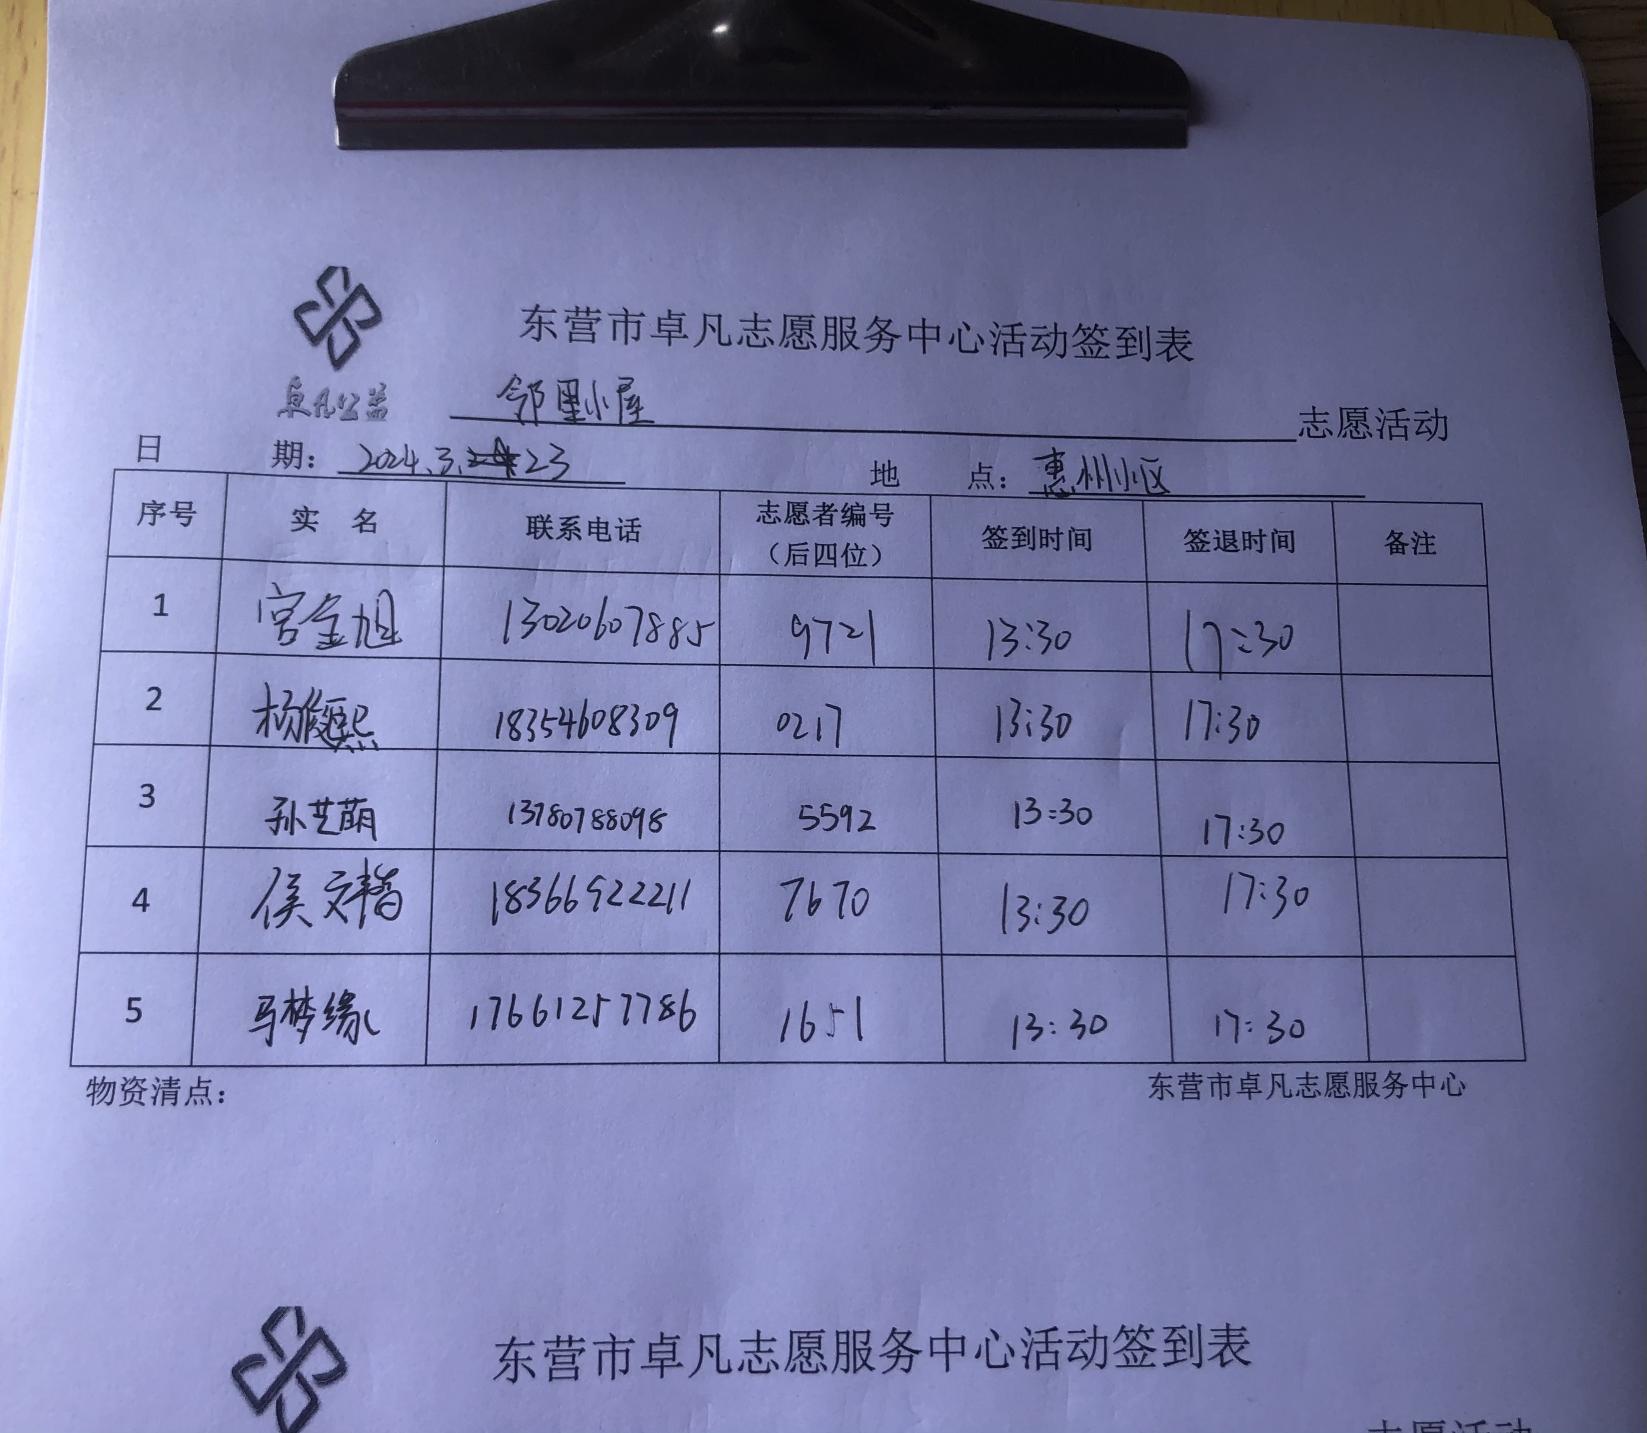 东营市卓凡志愿服务中心活动签到表
卓凡公益 邻里小屋 志愿活动
日 期： 2024.3.23 地 点： 惠州小区
序号 实 名 联系电话 志愿者编号（后四位） 签到时间 签退时间 备注
1 宫金旭 13020607885 9721 13:30 17:30
2 杨俊熙 18354608309 0217 13:30 17:30
3 孙艺萌 13780788098 5592 13:30 17:30
4 侯文 18366922211 7670 13:30 17:30
5 马梦缘 17661257786 1651 13:30 17:30
物资清点： 东营市卓凡志愿服务中心
东营市卓凡志愿服务中心活动签到表
志愿活动